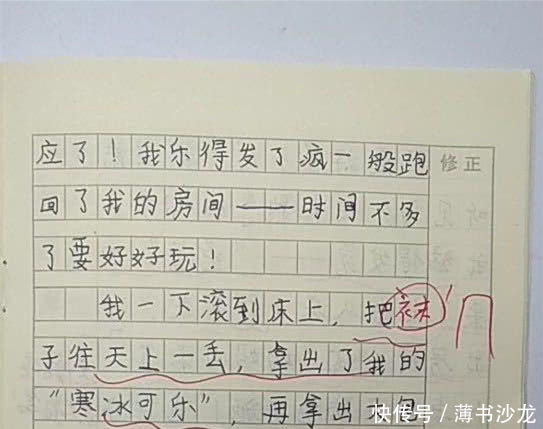 应了！我乐得发了疯一般跑
修正
回了我的房间——时间不多
了要好好玩！
我一下滚到床上，把袜
子往天上一丢，拿出了我的
“寒冰可乐”，再拿出
快传号／薄书沙龙